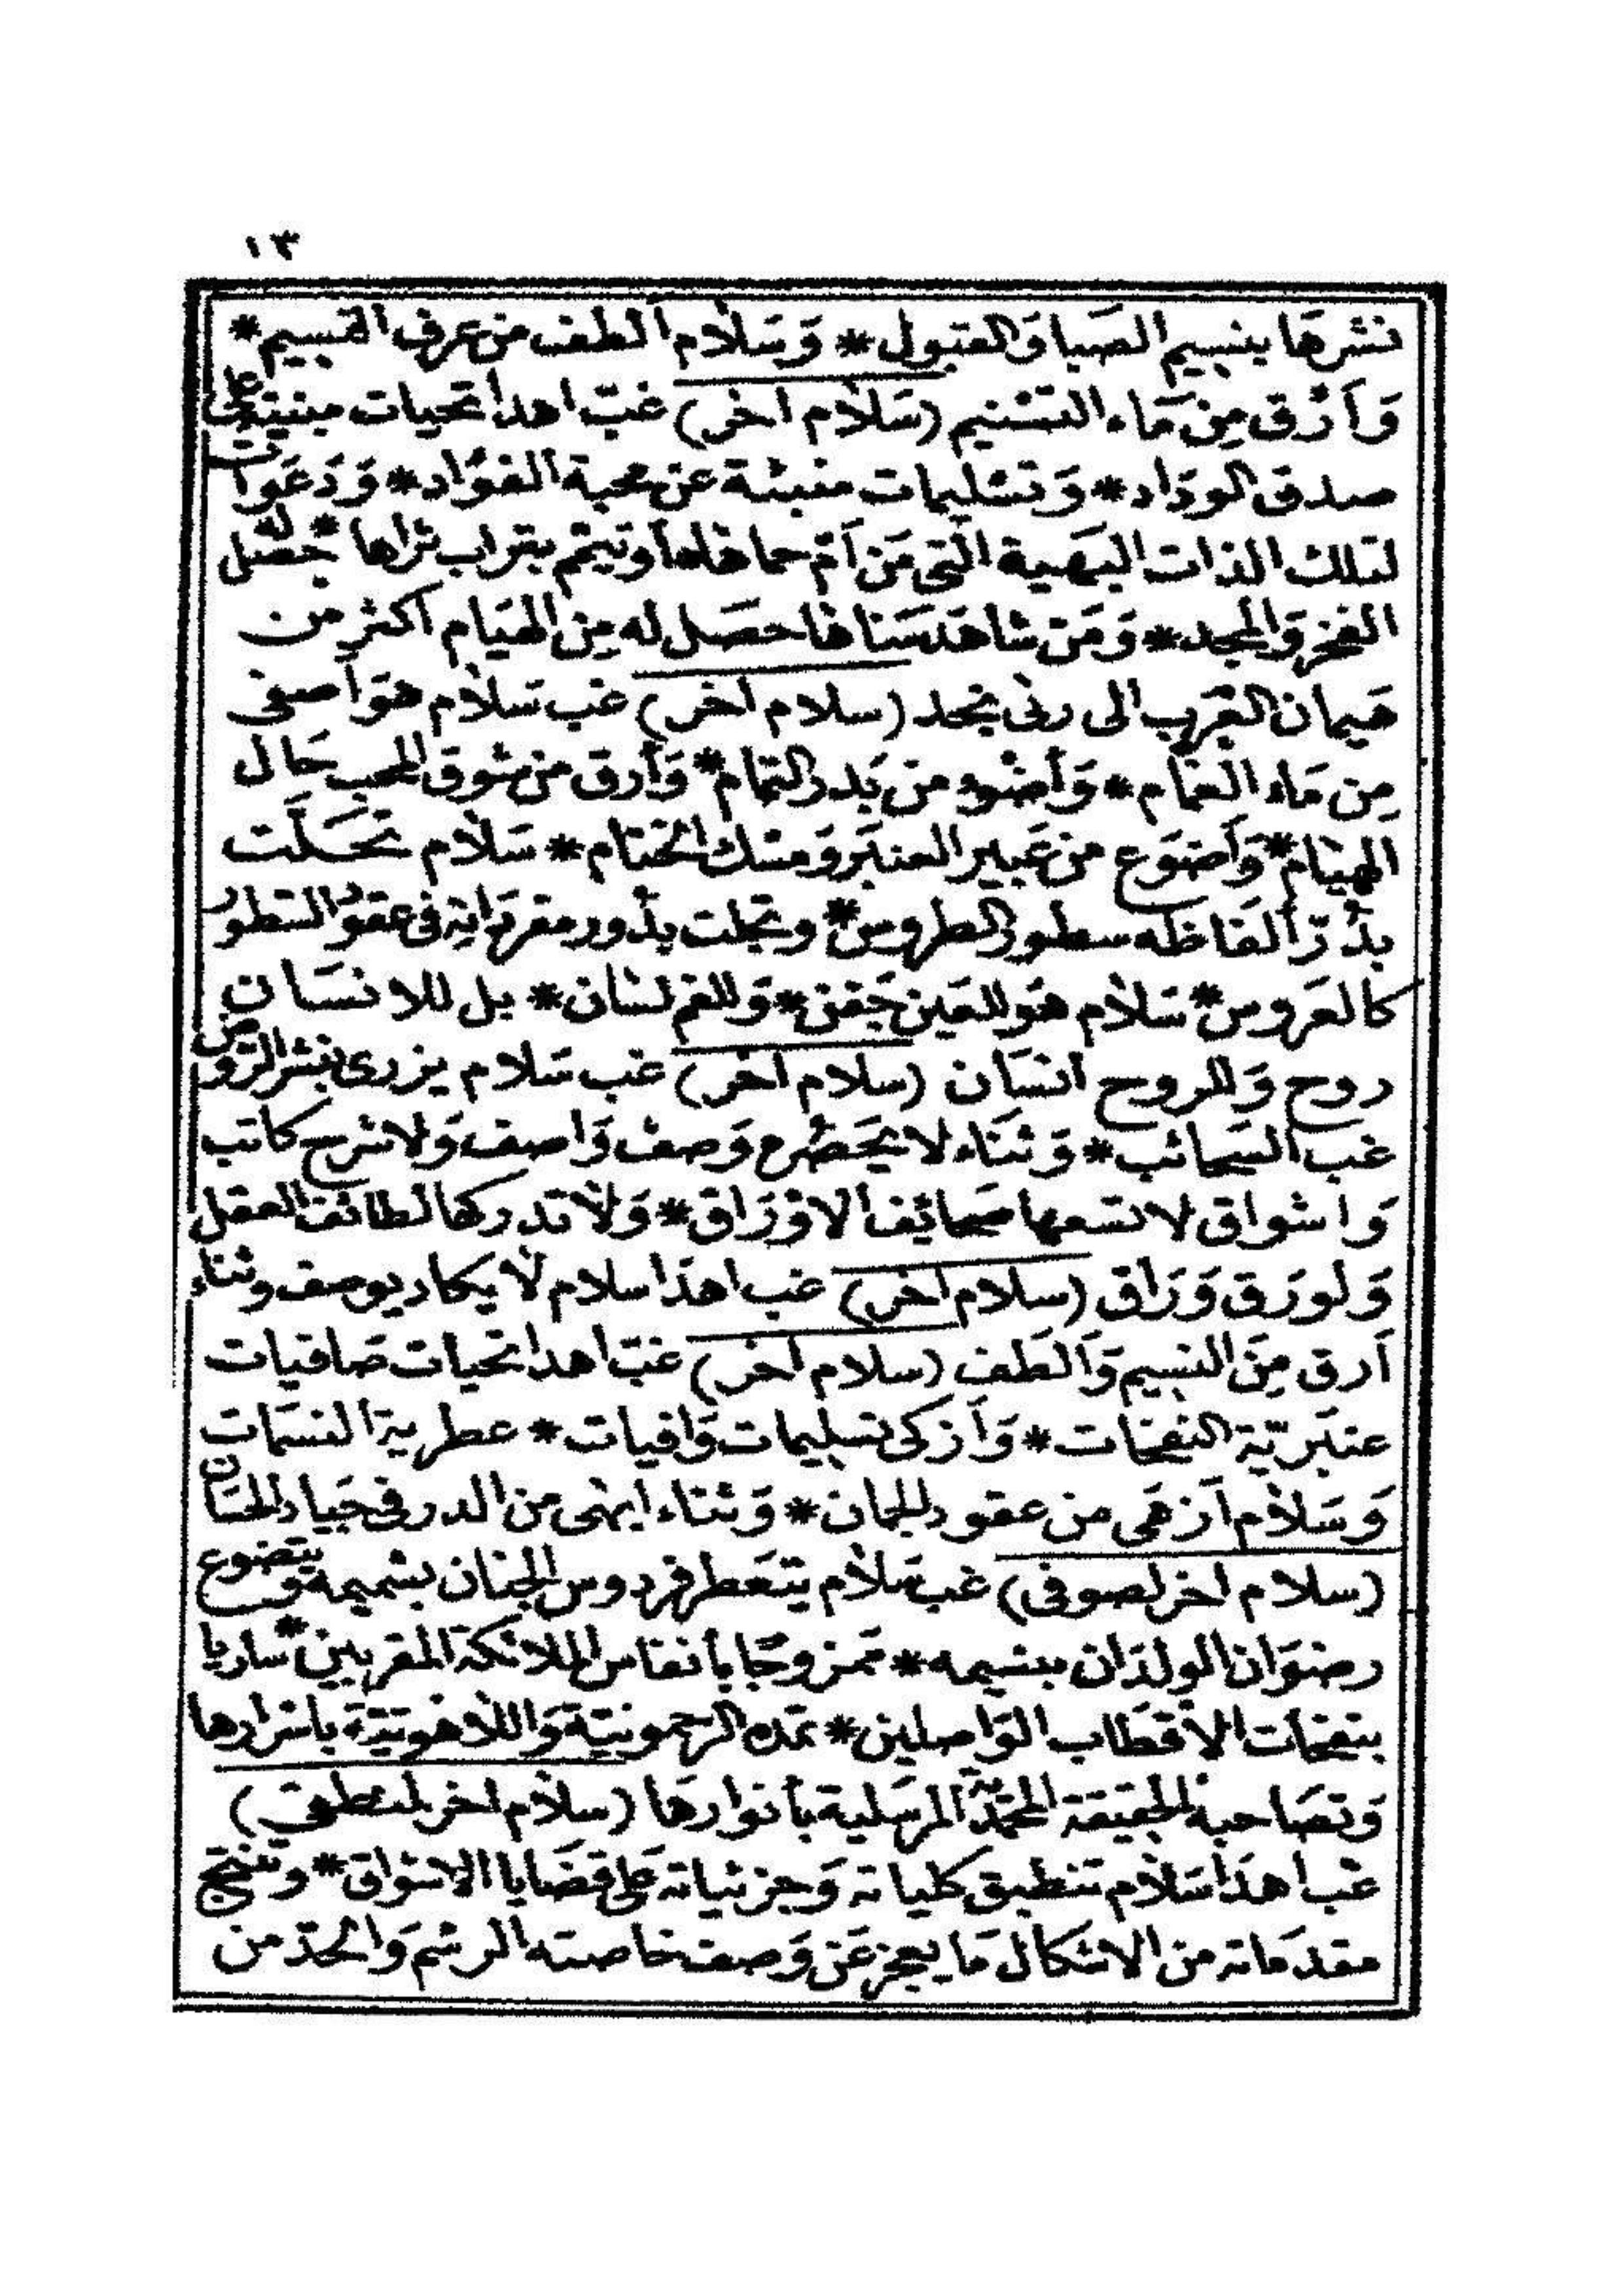 ١٣
نشرها بنسيم الصبا والقبول * وَسَلَام ألطف من عرف النسيم *
وَأَرْق مِن مَاء التسْنيم (سَلَام اخر) غبّ اهدا تحيات مبنية على
صدق الودَاد * وَتسْليمات منبئة عن محبة الفؤاد * وَدَعَوات
لتلك الذات البَهية التى مَن أَمّ حماها أو تيمّم بتراب ثراها * حصَل له
الفخر وَالمجد * وَمَن شاهَد سَناها حصَل له مِن الهيَام أكثر من
هَيمان العَرب الى ربى نجد (سلام اخر) غب سَلَام هوَ أصفى
مِن مَاء الغمَام * وَأضوء من بَدر التمام * وَأرق من شوق المحب حَال
الهيَام * وَأضوَع من عَبير العنبَر وَمسْك الختام * سَلَام تحَلَّت
بدُرّ ألفاظه سطور الطروس * وتجلت بدُور معَانيه فى عقود السطور
كالعَروس * سَلَام هوَ للعَين جَفن * وَللفم لسَان * بل للانسَان
روح وَللروح انسَان (سلام اخر) غب سَلام يزرى بنشر الروض
غب السحائب * وَثنَاء لا يحَصُره وَصف وَاصف وَلا شرح كاتب
وَاشواق لا تسعها صحَائِف الاوْرَاق * وَلا تدركها لطائف العقل
وَلو رَق وَرَاق (سلام اخر) غب اهدَا سلام لَا يكاد يوصف وثناء
أرق مِنَ النسيم وَألطَف (سلام اخر) غبّ اهدا تحيات صَافيات
عنبَريّة النفحَات * وَأزكى تسليمات وَافيات * عطرية النسمَات
وَسَلَام أزهَى من عقود الجمان * وَثناء ابهى من الدر فى جيَاد الحسَان
(سلام اخر لصوفى) غب سَلَام يتعَطر فردوس الجنان بشميمه وَيتضوع
رضوَان الولدَان ببسيمه * ممزوجًا بأنفاس الملائكة المقربين * ساريا
بنفحَات الأقطَاب الوَاصلين * تمده الرحمونيّة وَاللاهوتيّة باسْرارها
وَتصَاحبه الحقيقة المحمّديّة المرسَلية بأنوارهَا (سلَام اخر لمنطقى)
غب اهدَا سَلَام تنطبق كلياته وَجزئياته عَلى قضَايا الاشواق * وتنتج
مقدمَاته من الاشكال مَا يعجز عَن وَصف خاصته الرسْم وَالحدّ من